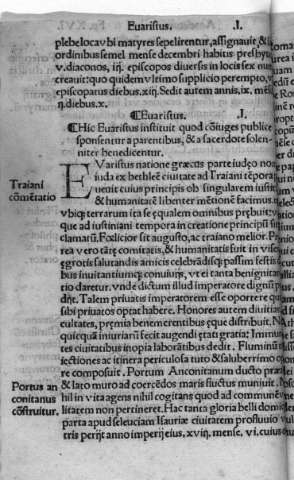 Evaristus. .I.
plebeloca vbi matyres sepelirentur, assignauit & i
ordinibus semel mense decembri habitis presbyt
v. diaconos, iij. episcopos diuersis in locis sex nu
creauit: quo quidem vltimo supplicio perempto, v
episcopatus diebus. xiij. Sedit autem annis, ix. mēs
ij. diebus. x.
¶Euaristus. .I.
¶Hic Euaristus instituit quod cōiuges publice
sponsentur a parentibus, & a sacerdote solen-
niter benedicentur.
EVaristus natione græcus patre iudeo no
iuda ex bethleē ciuitate ad Traiani tēpora
Traiani
uenit cuius principis ob singularem iustit
cōmēratio
& humanitatē libenter mētionē facimus. q
vbiqȝ terrarum ita se ęqualem omnibus prębuit: v
que ad iustiniani tempora in creatione principū sit
clamarū. Fœlicior sit augusto, ac traiano melior. P
rea vero tātę comitatis, & humanitatis fuit in vise
ęgrotis salutandis amicis celebrādisqȝ passim festis
bus inuitantiumqȝ conuiuijs, vt ei tanta benignitat
tio daretur. vnde dictum illud imperatore dignū
dijt. Talem priuatis imperatorem esse oportere qu
sibi priuatos optat habere. Honores autem diuitias
cultates, pręmia benemerentibus ęque distribuit. N
quicquā iniuriarū fecit augendi ętati gratia: Immun
tes ciuitatibus inopia laborātibus dedit. Fluminū i
iectiones ac itinera periculosa tuto & saluberrimo o
re composuit. Portum Anconitanum ducto prael
Portus an
& lato muro ad coercēdos maris fluctus muniuit.
conitanus
hil in vita agens nihil cogitans quod ad commune v
cōstruitur.
litatem non pertineret. Hac tanta gloria belli domi
parta apud seleuciam Isaurię ciuitatem profluuio
tris perijt anno imperij eius, xviij. mense, vi. cuius